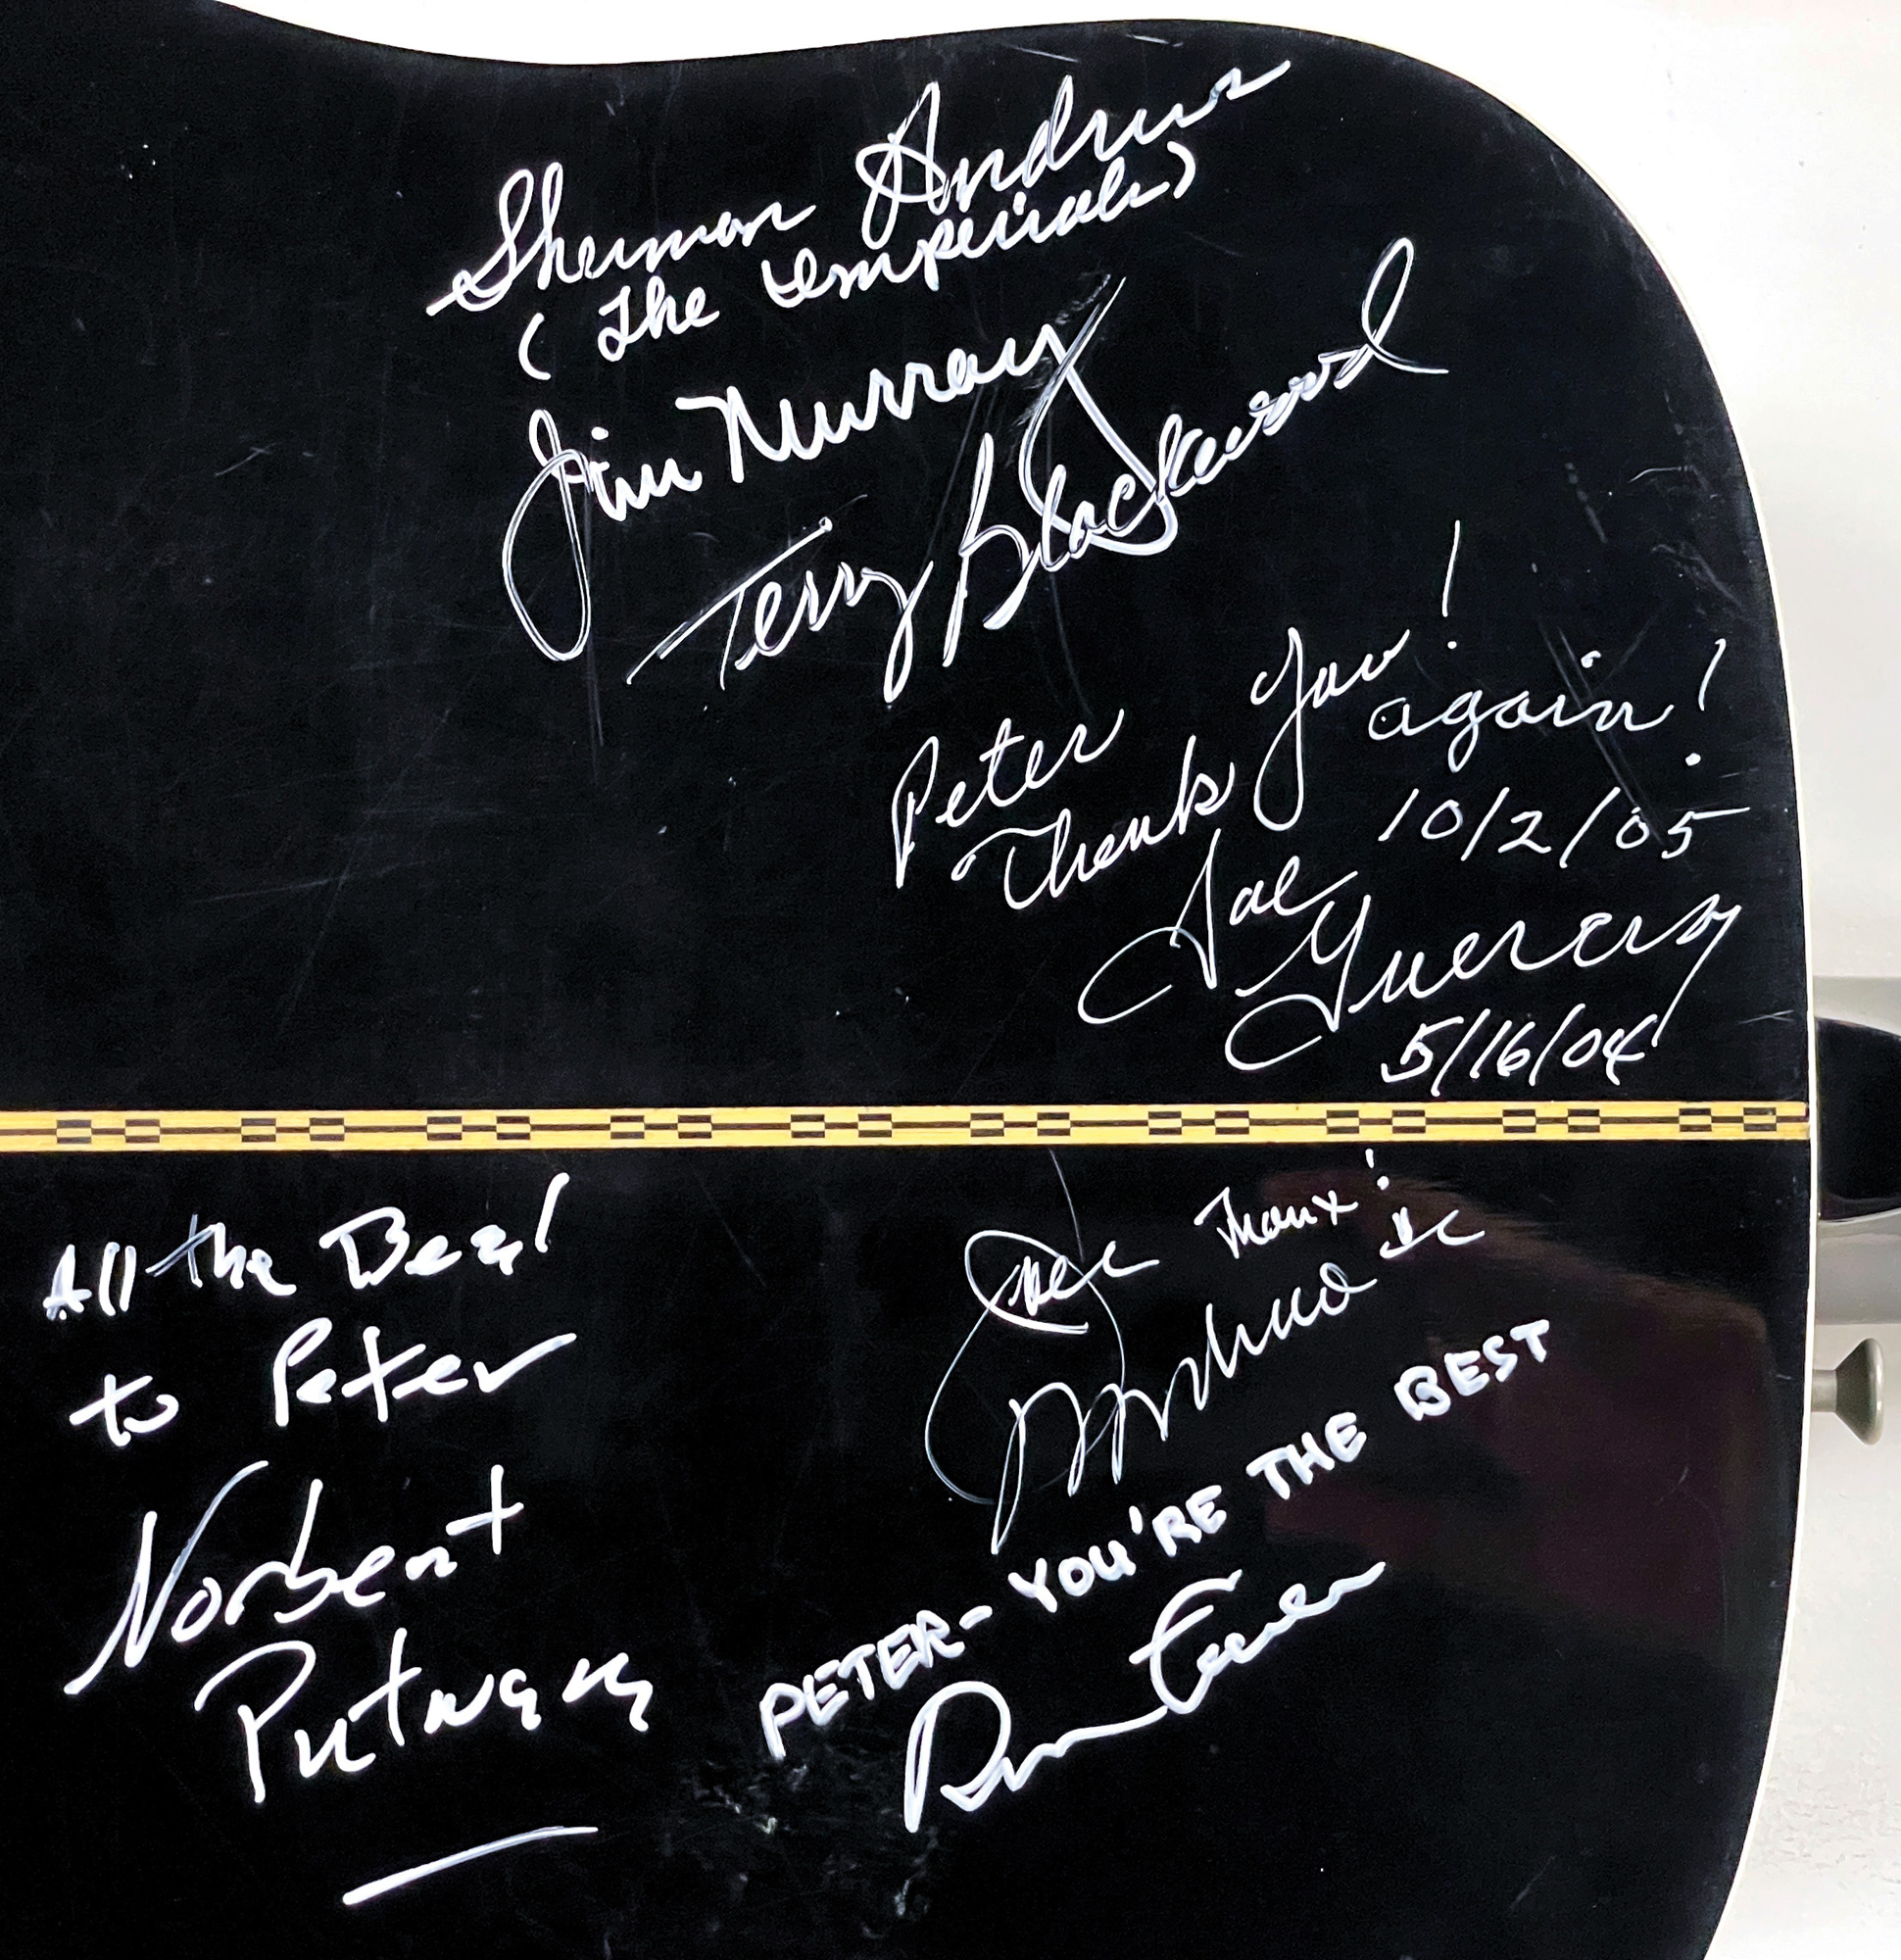 Sherman Andrus
( The Imperials)
Jim Murray
Terry Blackwood
Peter
Thank You!
again!
10/2/05
Joe
Guercio
5/16/04
All the Best
to Peter
Norbert
Putnam
Joe
Thanx!
PETER- YOU'RE THE BEST